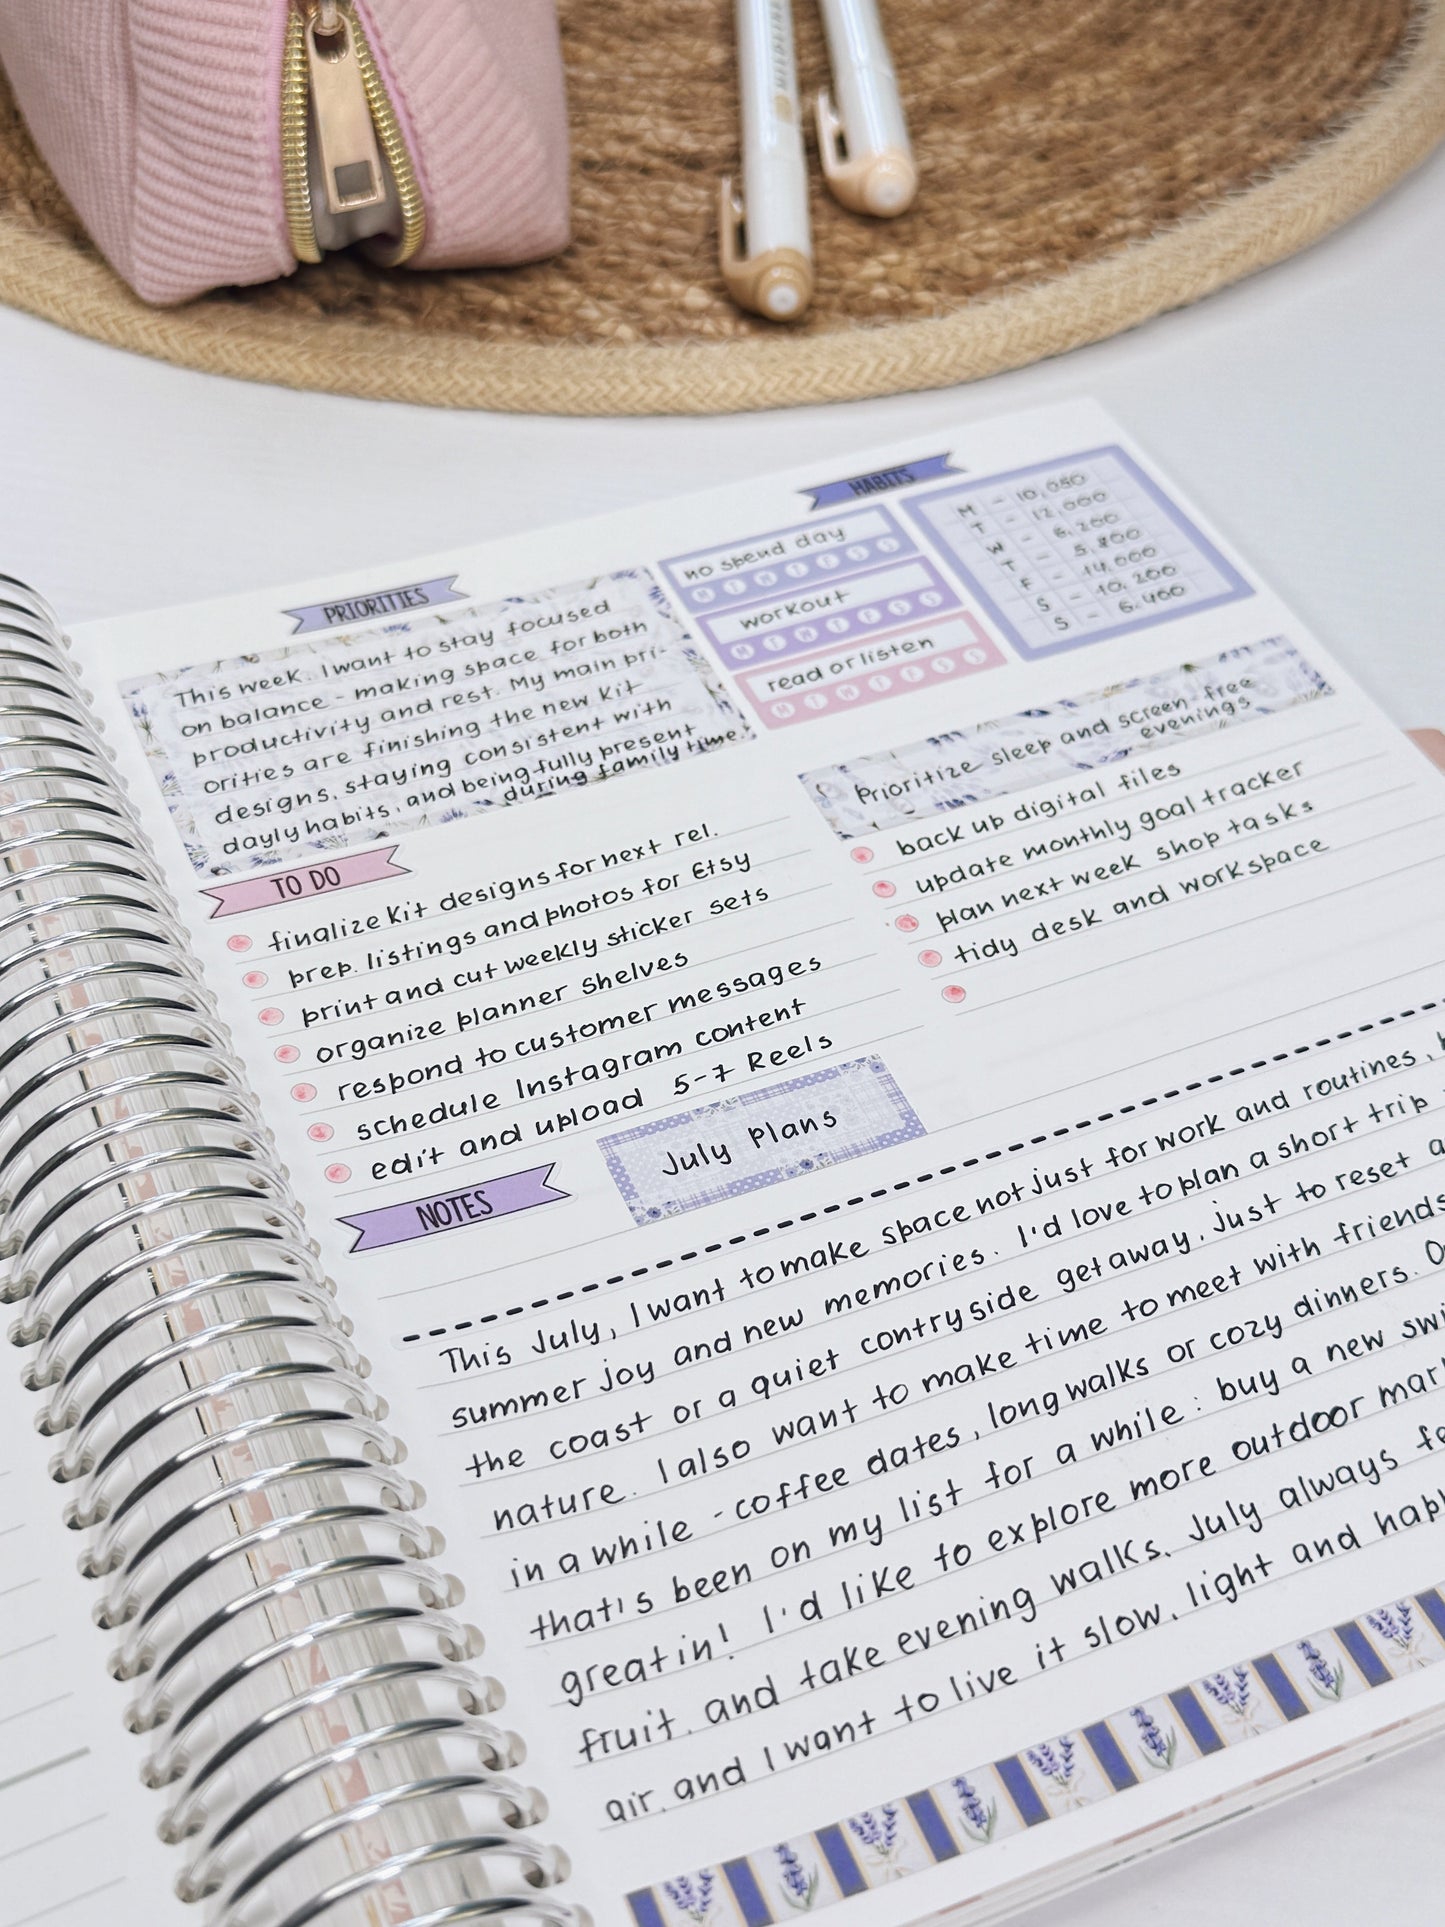 PRIORITIES
This week, I want to stay focused
on balance - making space for both
productivity and rest. My main pri-
orities are finishing the new kit
designs, staying consistent with
dayly habits, and being fully present
during family time.
HABITS
no spend day
M T W T F S S
workout
M T W T F S S
read or listen
M T W T F S S
M - 10,050
T - 12,000
W - 6,200
T - 5,800
F - 14,000
S - 10,200
S - 6,400
Prioritize sleep and screen-free
evenings
TO DO
finalize kit designs for next rel.
prep. listings and photos for Etsy
print and cut weekly sticker sets
organize planner shelves
respond to customer messages
schedule Instagram content
edit and upload 5-7 Reels
back up digital files
update monthly goal tracker
plan next week shop tasks
tidy desk and workspace
NOTES
July plans
This July, I want to make space not just for work and routines,
summer joy and new memories. I'd love to plan a short trip
the coast or a quiet contryside getaway, just to reset
nature. I also want to make time to meet with friends
in a while - coffee dates, long walks or cozy dinners.
that's been on my list for a while: buy a new
great in! I'd like to explore more outdoor
fruit, and take evening walks. July always
air, and I want to live it slow, light and